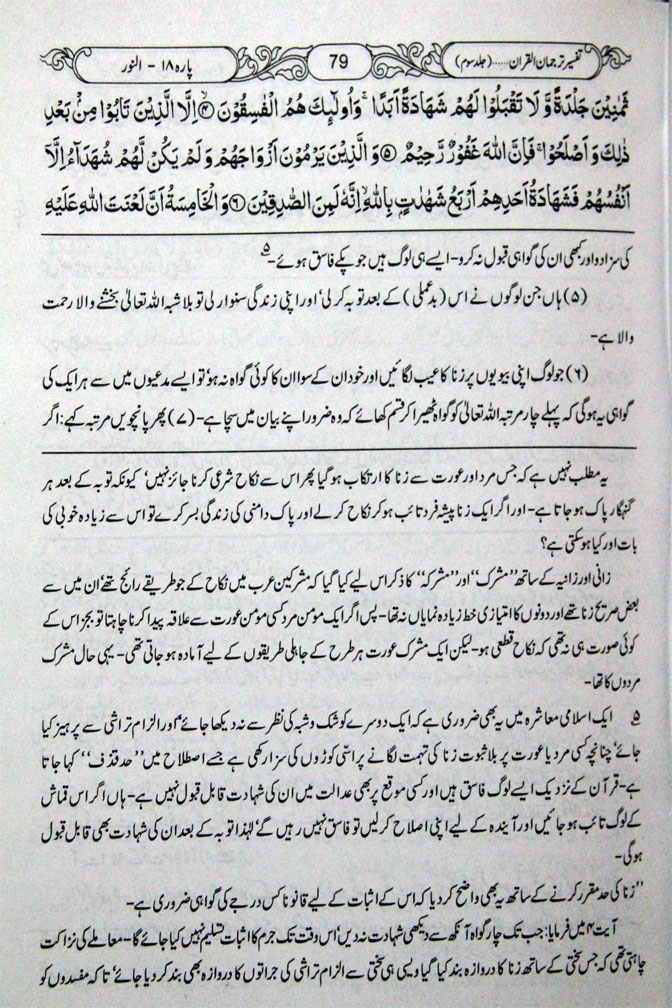 تفسیر ترجمان القرآن......(جلد سوم)
79
پارہ ۱۸ - النور
ثَمٰنِیْنَ جَلْدَةً وَّ لَا تَقْبَلُوْا لَهُمْ شَهَادَةً اَبَدًا ۚ وَ اُولٰٓىِٕكَ هُمُ الْفٰسِقُوْنَ ۙ﴿۴﴾ اِلَّا الَّذِیْنَ تَابُوْا مِنْۢ بَعْدِ
ذٰلِكَ وَ اَصْلَحُوْا ۚ فَاِنَّ اللّٰهَ غَفُوْرٌ رَّحِیْمٌ ﴿۵﴾ وَ الَّذِیْنَ یَرْمُوْنَ اَزْوَاجَهُمْ وَ لَمْ یَكُنْ لَّهُمْ شُهَدَآءُ اِلَّاۤ
اَنْفُسُهُمْ فَشَهَادَةُ اَحَدِهِمْ اَرْبَعُ شَهٰدٰتٍۭ بِاللّٰهِ ۙ اِنَّهٗ لَمِنَ الصّٰدِقِیْنَ ﴿۶﴾ وَ الْخَامِسَةُ اَنَّ لَعْنَتَ اللّٰهِ عَلَیْهِ
کی سزا دو اور کبھی ان کی گواہی قبول نہ کرو- ایسے ہی لوگ ہیں جو پکے فاسق ہوئے-۵
(۵) ہاں جن لوگوں نے اس (بدعملی) کے بعد توبہ کر لی' اور اپنی زندگی سنوار لی تو بلاشبہ اللہ تعالیٰ بخشنے والا رحمت
والا ہے-
(۶) جو لوگ اپنی بیویوں پر زنا کا عیب لگائیں اور خود ان کے سوا ان کا کوئی گواہ نہ ہو' تو ایسے مدعیوں میں سے ہر ایک کی
گواہی یہ ہوگی کہ پہلے چار مرتبہ اللہ تعالیٰ کو گواہ ٹھیرا کر قسم کھائے کہ وہ ضرور اپنے بیان میں سچا ہے- (۷) پھر پانچویں مرتبہ کہے: اگر
یہ مطلب نہیں ہے کہ جس مرد اور عورت سے زنا کا ارتکاب ہو گیا پھر اس سے نکاح شرعی کرنا جائز نہیں' کیونکہ توبہ کے بعد ہر
گنہگار پاک ہو جاتا ہے- اور اگر ایک زنا پیشہ فرد تائب ہو کر نکاح کر لے اور پاک دامنی کی زندگی بسر کرے تو اس سے زیادہ خوبی کی
بات اور کیا ہو سکتی ہے؟
زانی اور زانیہ کے ساتھ ''مشرک'' اور ''مشرکہ'' کا ذکر اس لیے کیا گیا کہ مشرکین عرب میں نکاح کے جو طریقے رائج تھے' ان میں سے
بعض صریح زنا تھے اور دونوں کا امتیازی خط زیادہ نمایاں نہ تھا- پس اگر ایک مومن مرد کسی مومن عورت سے علاقہ پیدا کرنا چاہتا تو بجز اس کے
کوئی صورت ہی نہ تھی کہ نکاح قطعی ہو- لیکن ایک مشرک عورت ہر طرح کے جاہلی طریقوں کے لیے آمادہ ہو جاتی تھی- یہی حال مشرک
مردوں کا تھا-
۵ ایک اسلامی معاشرہ میں یہ بھی ضروری ہے کہ ایک دوسرے کو شک و شبہ کی نظر سے نہ دیکھا جائے' اور الزام تراشی سے پرہیز کیا
جائے' چنانچہ کسی مرد یا عورت پر بلا ثبوت زنا کی تہمت لگانے پر اسّی کوڑوں کی سزا رکھی ہے جسے اصطلاح میں ''حد قذف'' کہا جاتا
ہے- قرآن کے نزدیک ایسے لوگ فاسق ہیں اور کسی موقع پر بھی عدالت میں ان کی شہادت قابل قبول نہیں ہے- ہاں اگر اس قماش
کے لوگ تائب ہو جائیں اور آیندہ کے لیے اپنی اصلاح کر لیں تو فاسق نہیں رہیں گے' لہٰذا توبہ کے بعد ان کی شہادت بھی قابل قبول
ہوگی-
''زنا کی حد مقرر کرنے کے ساتھ یہ بھی واضح کر دیا کہ اس کے اثبات کے لیے قانوناً کس درجے کی گواہی ضروری ہے-
آیت ۴ میں فرمایا: جب تک چار گواہ آنکھ سے دیکھی شہادت نہ دیں' اس وقت تک جرم کا اثبات تسلیم نہیں کیا جائے گا- معاملے کی نزاکت
چاہتی تھی کہ جس سختی کے ساتھ زنا کا دروازہ بند کیا گیا ویسی ہی سختی سے الزام تراشی کی جراتوں کا دروازہ بھی بند کر دیا جائے' تاکہ مفسدوں کو